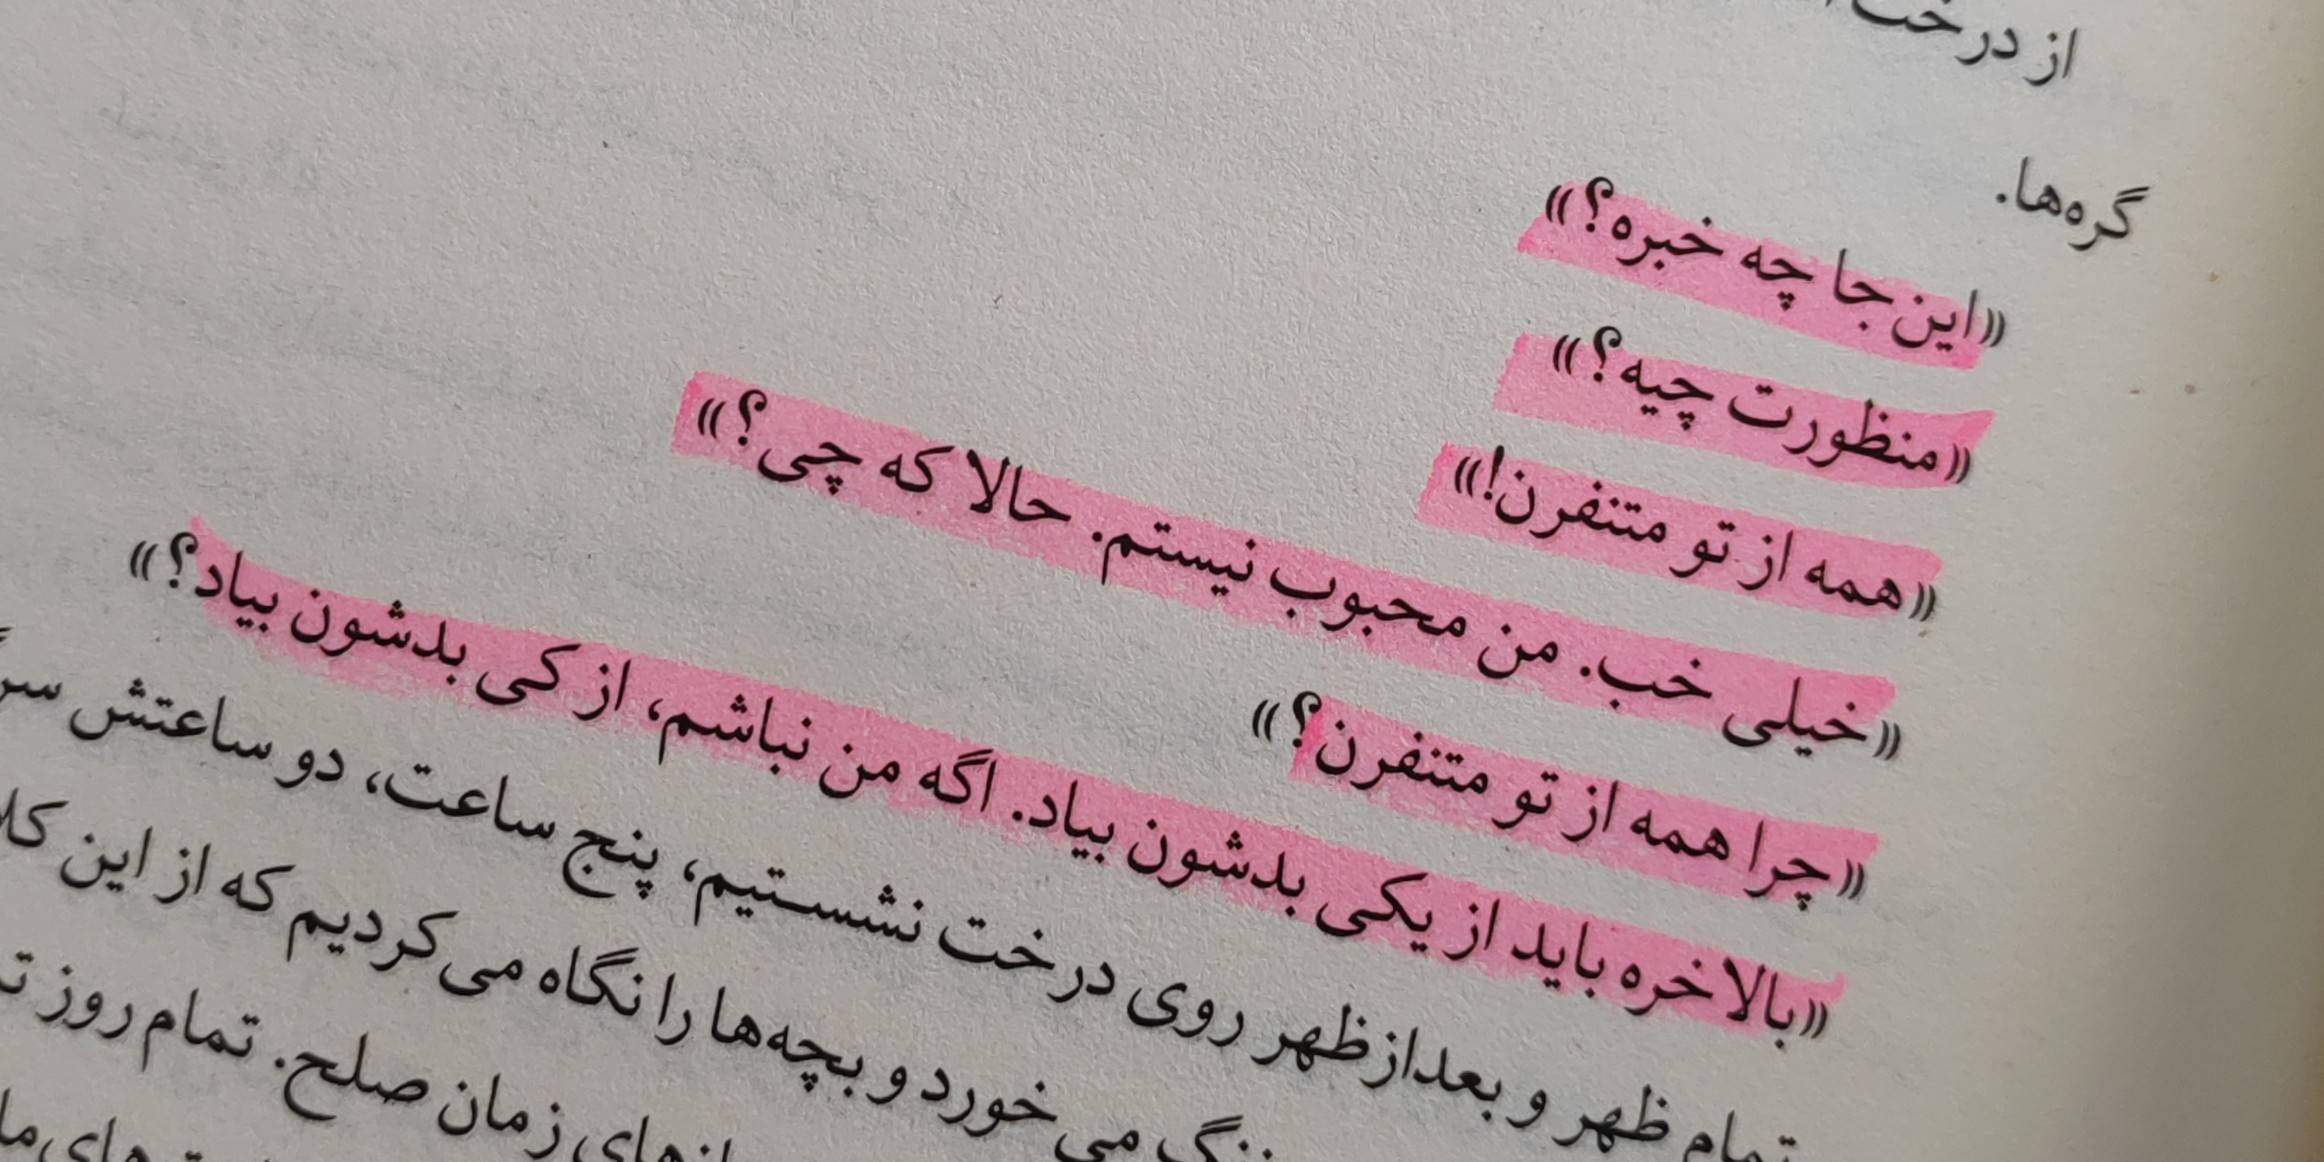 از درخت
گره‌ها.
«این‌جا چه خبره؟»
«منظورت چیه؟»
«همه از تو متنفرن!»
«خیلی خب. من محبوب نیستم. حالا که چی؟»
«چرا همه از تو متنفرن؟»
«بالاخره باید از یکی بدشون بیاد. اگه من نباشم، از کی بدشون بیاد؟»
تمام ظهر و بعدازظهر روی درخت نشستیم، پنج ساعت، دو ساعتش
می‌خورد و بچه‌ها را نگاه می‌کردیم که از این
زمان صلح. تمام روز